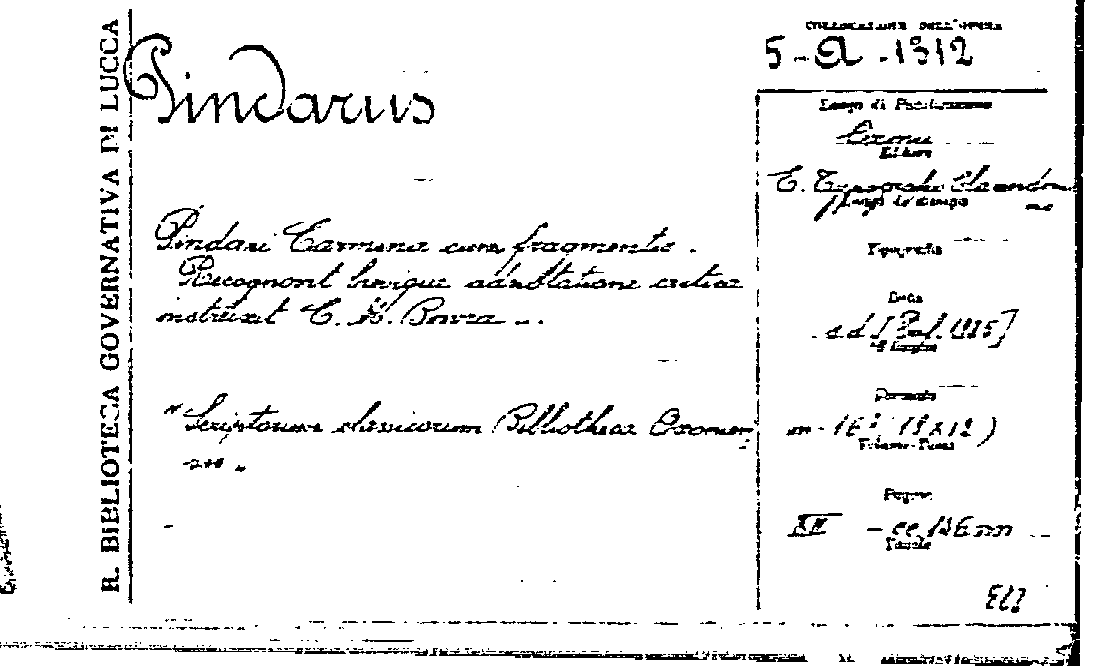 R. BIBLIOTECA GOVERNATIVA DI LUCCA
Pindarus
Pindari Carmina cum fragmentis.
Recognovit brevique adnotatione critica
instruxit C. M. Bowra ...
"Scriptorum classicorum Bibliotheca Oxonien
COLLOCAZIONE DELL'OPERA
5-A-1312
Luogo di Pubblicazione
Editore
E. Typographeo Clarendon
Luogo di stampa
Tipografia
Data
s d [Praef. 1935]
Formato
in-16° 19x12)
Volume-Tomo
Pagine
XII
Tavole